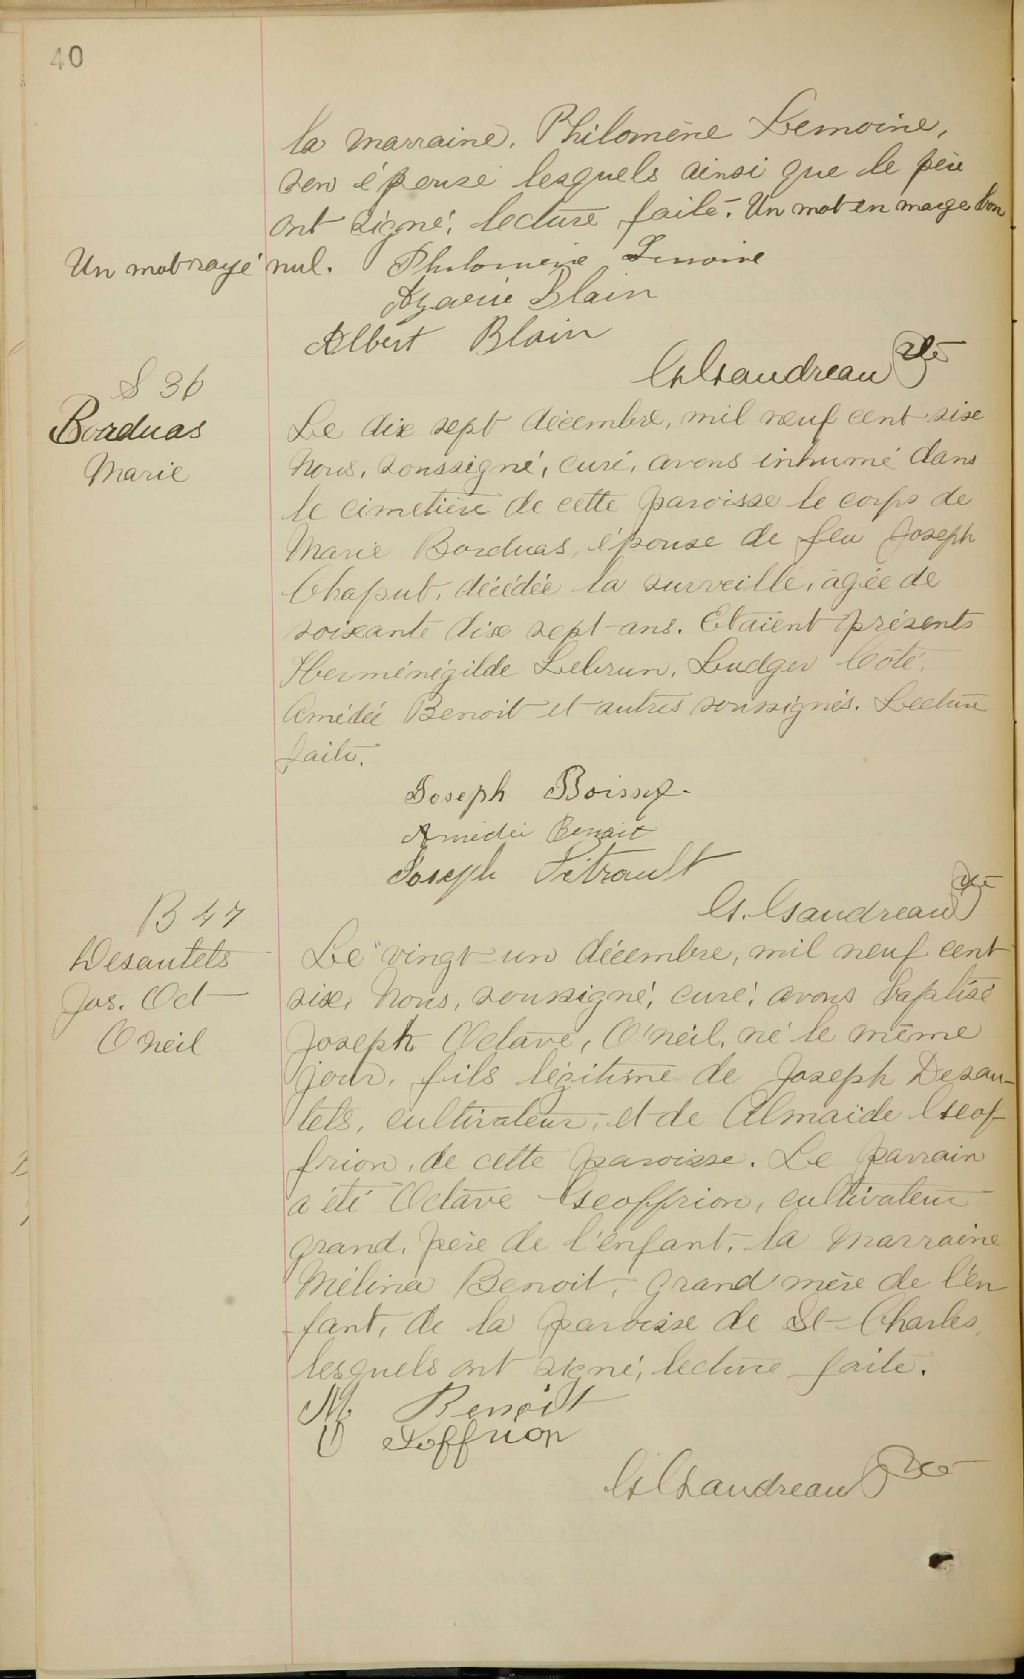 40
la marraine, Philomène Lemoine,
son épouse lesquels ainsi que le père
ont signé, lecture faite. Un mot en marge bon
Un mot rayé nul. Philomène Lemoine
Azarie Blain
Albert Blain
G. Gaudreau Ptre
S 36
Borduas
Marie
Le dix sept décembre, mil neuf cent six
Nous, soussigné, curé, avons inhumé dans
le cimetière de cette paroisse le corps de
Marie Borduas, épouse de feu Joseph
Chaput, décédée la surveille, âgée de
soixante dix sept ans. Etaient présents
Herménégilde Lebrun, Ludger Côté,
Amédée Benoit et autres soussignés. Lecture
faite.
Joseph Boissy
Amédée Benoit
Joseph Tétrault
G. Gaudreau Ptre
B 47
Desautels
Jos. Oct
O'neil
Le vingt-un décembre, mil neuf cent
six, Nous, soussigné, curé, avons baptisé
Joseph Octave, O'neil, né le même
jour, fils légitime de Joseph Desau-
tels, cultivateur, et de Almaïde Geof
frion, de cette paroisse. Le parrain
a été Octave Geoffrion, cultivateur
grand, père de l'enfant, la marraine
Mélina Benoit, grand mère de l'en
fant, de la paroisse de St-Charles,
lesquels ont signé, lecture faite.
M. Benoit
O Joffrion
G. Gaudreau Ptre